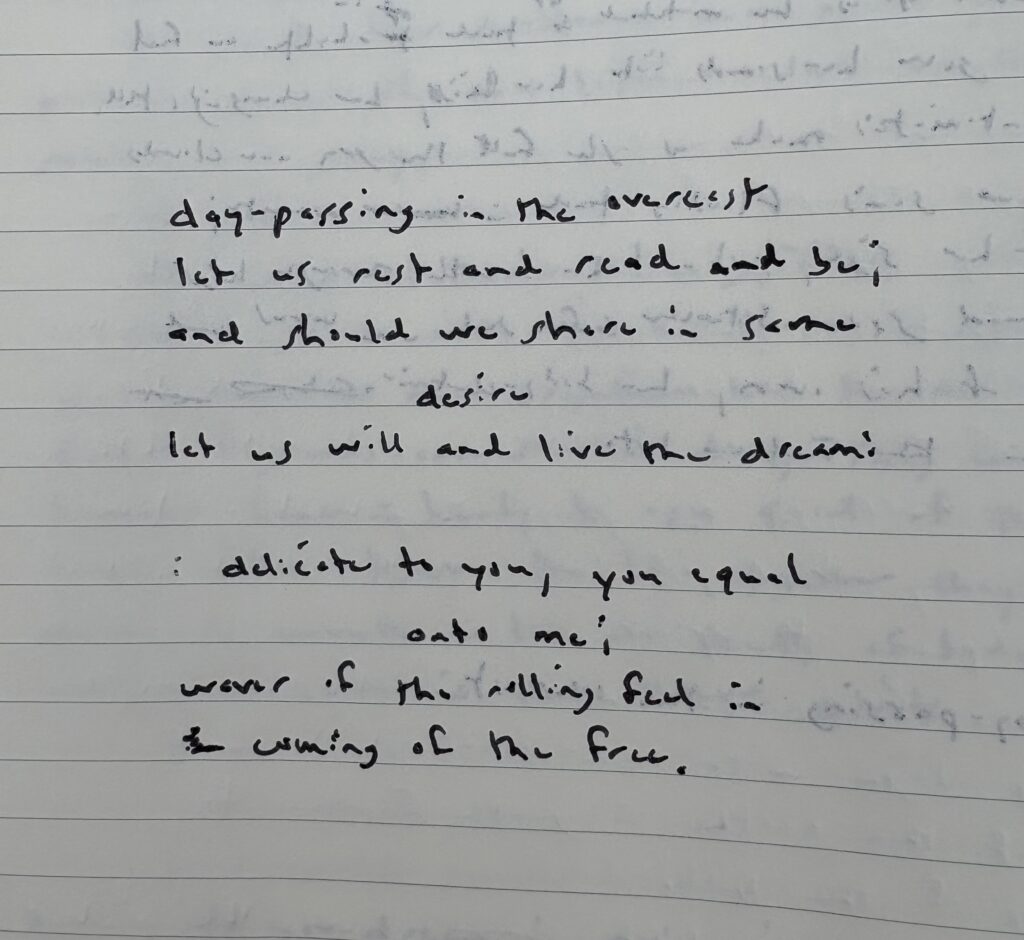 day-passing in the overcast
let us rest and read and be;
and should we share in same
desire
let us will and live the dream:
: delicate to you, you equal
onto me;
waver of the rolling feel in
coming of the free.